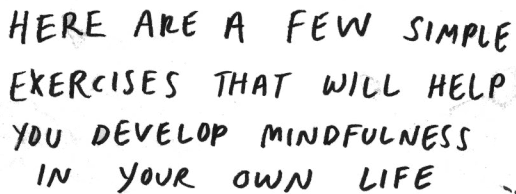 HERE ARE A FEW SIMPLE
EXERCISES THAT WILL HELP
YOU DEVELOP MINDFULNESS
IN YOUR OWN LIFE